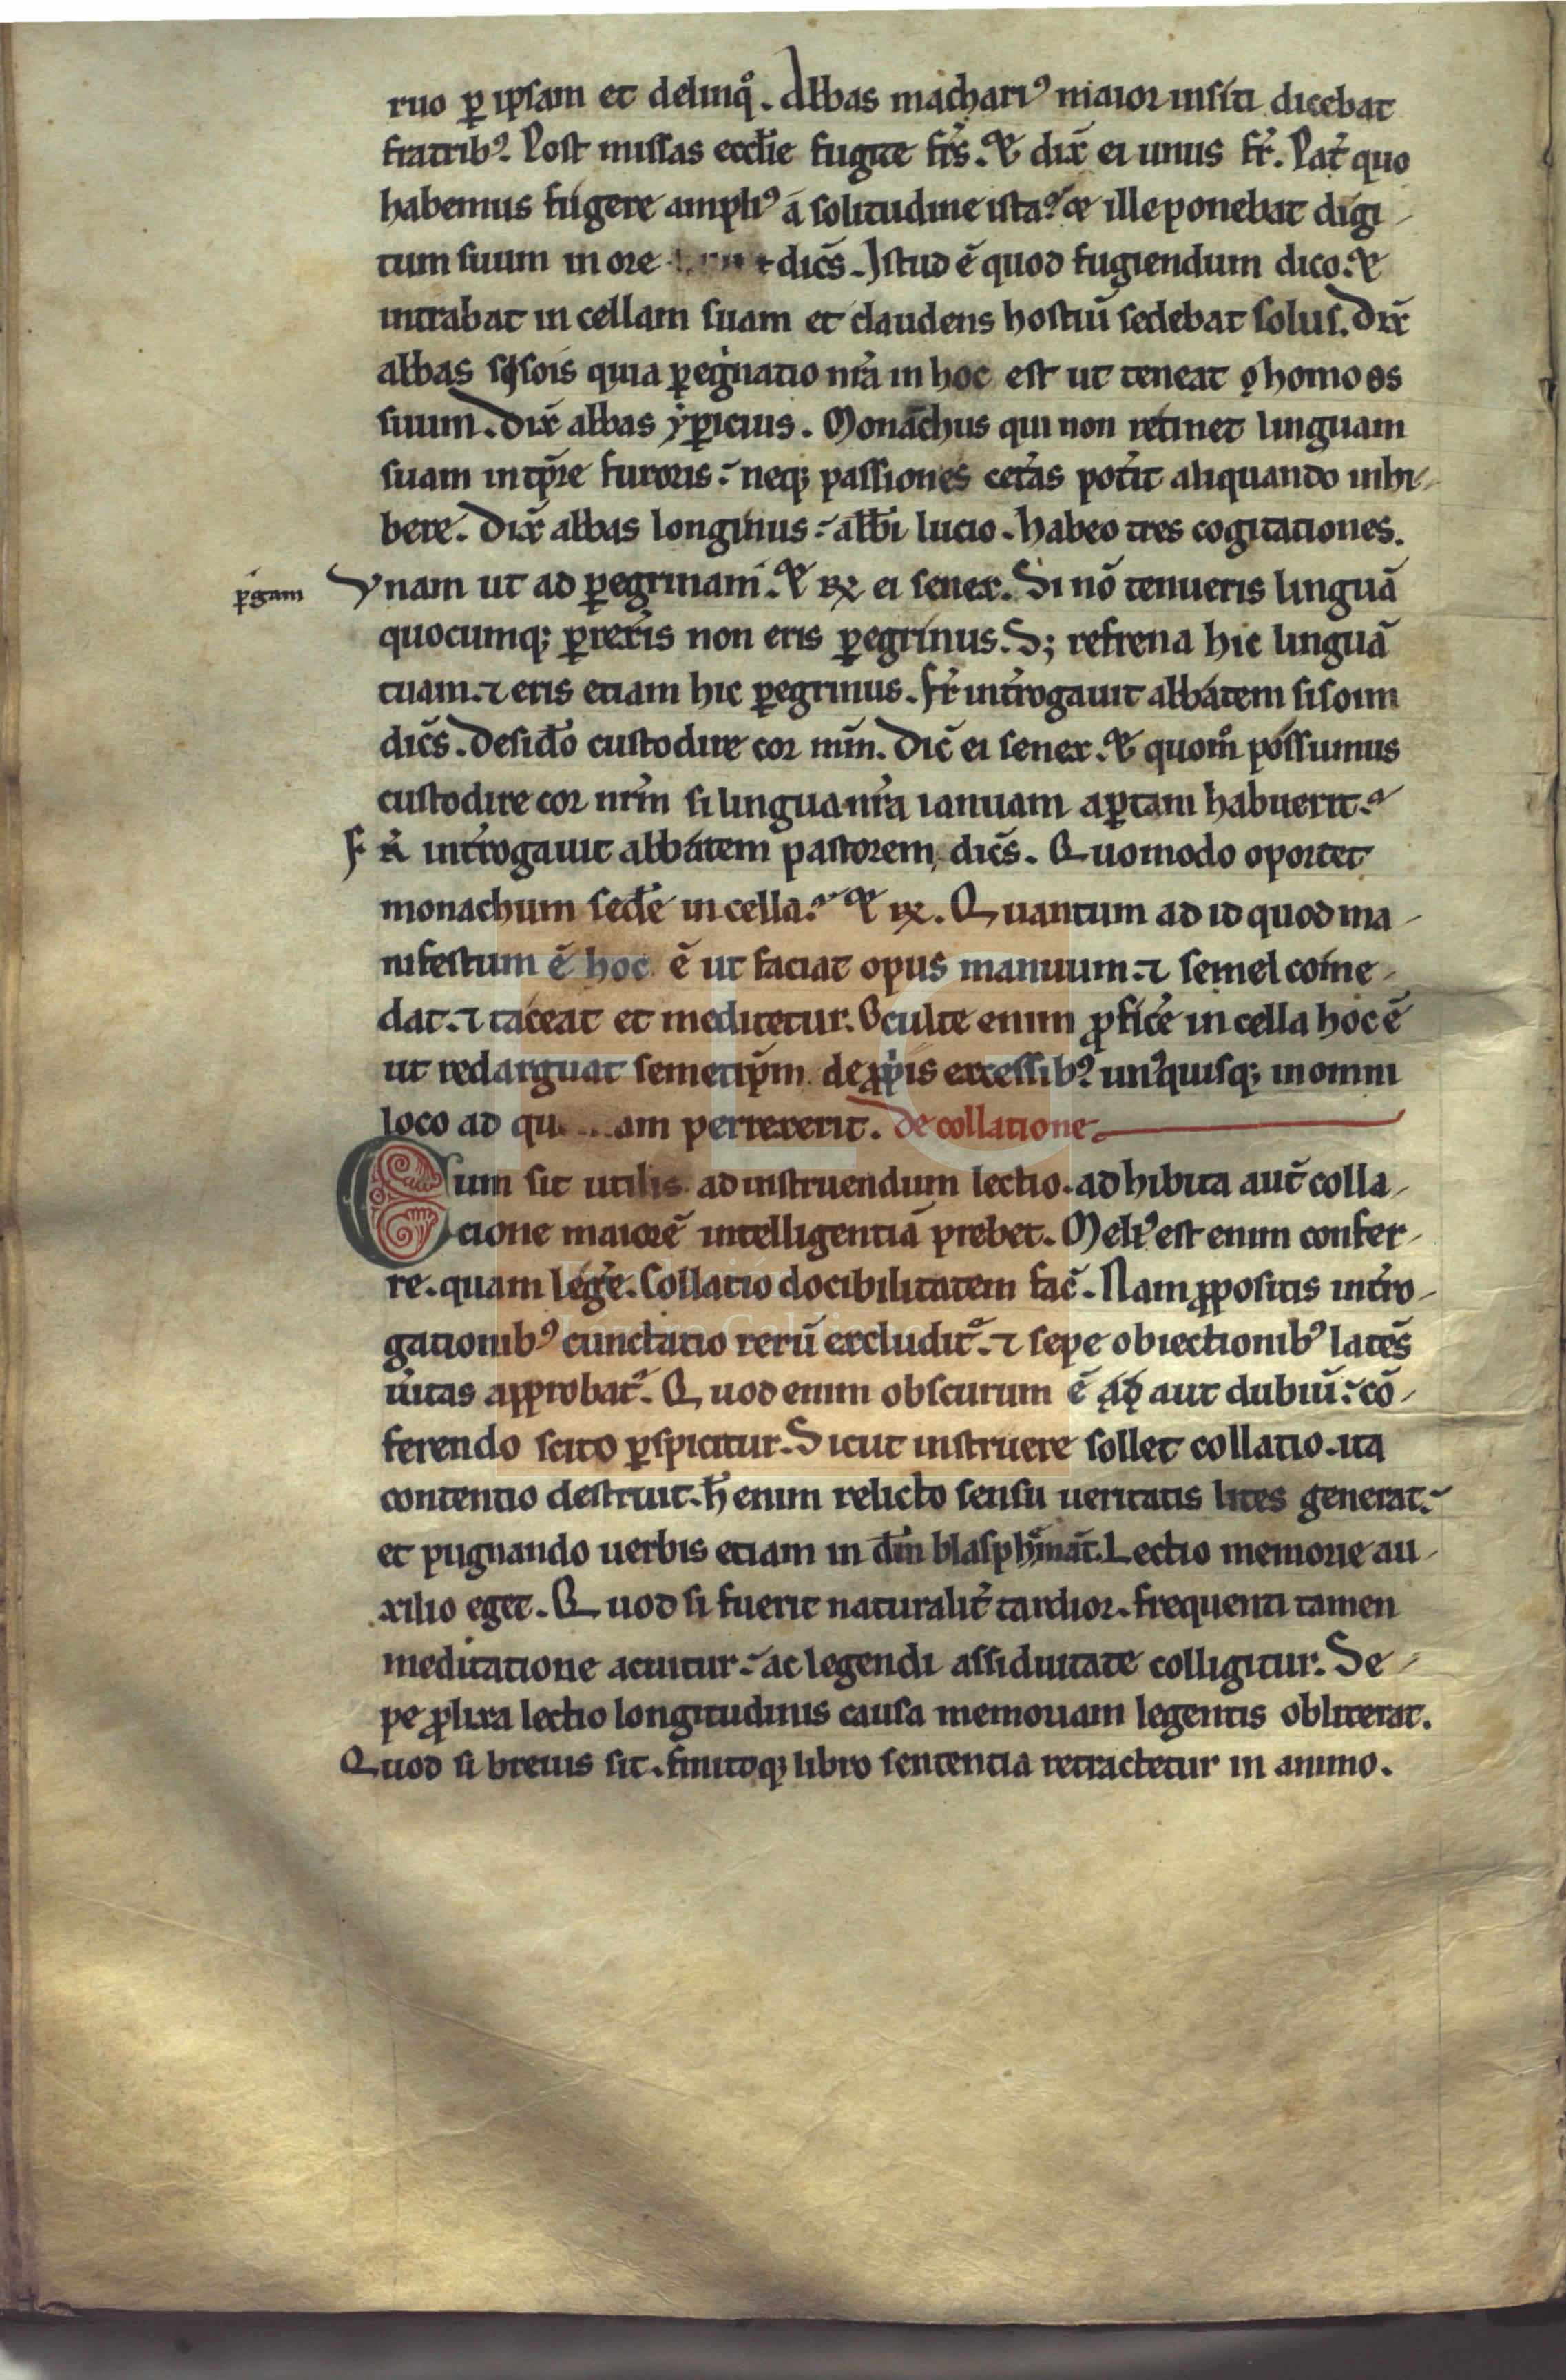 ruo ꝑ ipsam et delinq̊. Abbas machariꝰ maior in siti dicebat
fratribꝫ. Post missas eccl̄ie fugite fr̄s. & dix̄ ei unus fr̄. Pat̄ quo
habemus fugere ampliꝰ a solitudine ista? & ille ponebat digi-
tum suum in ore dic̄s. Istud ē quod fugiendum dico. &
intrabat in cellam suam et claudens hostiū sedebat solus. Dix̄
abbas sysois quia ꝑeg̓natio nr̄a in hoc est ut teneat homo os
suum. Dix̄ abbas yꝑicius. Monachus qui non retinet linguam
suam in tp̄re furoris. neqꝫ passiones cet̓as pot̓it aliquando inhi-
bere. Dix̄ abbas longinus. abb̄i lucio. habeo tres cogitationes.
ꝑgam
Vnam ut ad ꝑegrinam. & ꝶ ei senex. Si nō tenueris linguā
quocumqꝫ ꝑrex̓is non eris ꝑegrinus. Sꝫ refrena hic linguā
tuam. ⁊ eris etiam hic ꝑegrinus. Fr̄ int̓rogauit abbatem sisoim
dic̄s. Desid̓o custodire cor mm̄. Dic̄ ei senex. & quom̊ possumus
custodire cor nrm̄ si lingua nr̄a ianuam aꝑtam habuerit?
Fr̄ int̓rogauit abbatem pastorem dic̄s. Quomodo oportet
monachum sed̓e in cella? & ꝶ. Quantum ad id quod ma-
nifestum ē hoc ē ut faciat opus manuum. ⁊ semel come-
dat. ⁊ taceat et meditetur. Oculte enim ꝓfic̓e in cella hoc ē
ut redarguat semetip̄m de ꝓp̓is excessibꝫ unꝰquisqꝫ in omni
loco ad am perrexerit. De collatione.
Cum sit utilis ad instruendum lectio. adhibita aut̄ colla-
cione maiorē intelligentiā prebet. Meliꝰ est enim confer-
re. quam leg̓e. Collatio docibilitatem fac̄. Nam ꝓpositis int̓ro-
gationibꝰ cunctatio rerū excludit᷑. ⁊ sepe obiectionibꝰ latēs
ūitas approbat᷑. Quod enim obscurum ē aut dubiū. cō-
ferendo scito ꝑspicitur. Sicut instruere sollet collatio. ita
contentio destruit. h̄ enim relicto sensu ueritatis lites generat.
et pugnando uerbis etiam in dm̄ blasphmat̄. Lectio memorie au-
xilio eget. Quod si fuerit naturalit̓ tardior. frequenti tamen
meditatione acuitur. ac legendi assiduitate colligitur. Se-
pe ꝓlixa lectio longitudinis causa memoriam legentis obliterat.
Quod si breuis sit. finitoqꝫ libro sententia retractetur in animo.